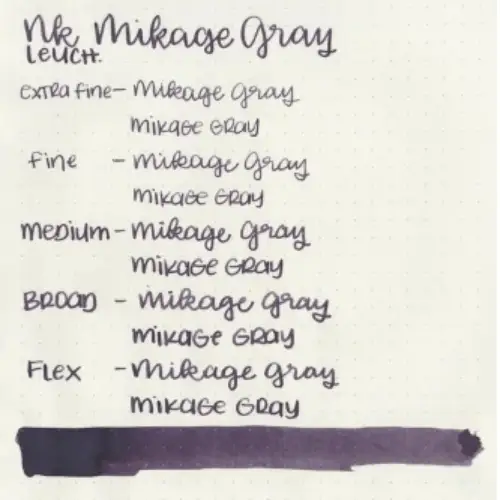 Nk Mikage Gray
LEUCHT.
extra fine – Mikage Gray
MIKAGE GRAY
fine – Mikage Gray
MIKAGE GRAY
MEDIUM – Mikage Gray
MIKAGE GRAY
BROAD – Mikage Gray
MIKAGE GRAY
FLEX – Mikage Gray
MIKAGE GRAY